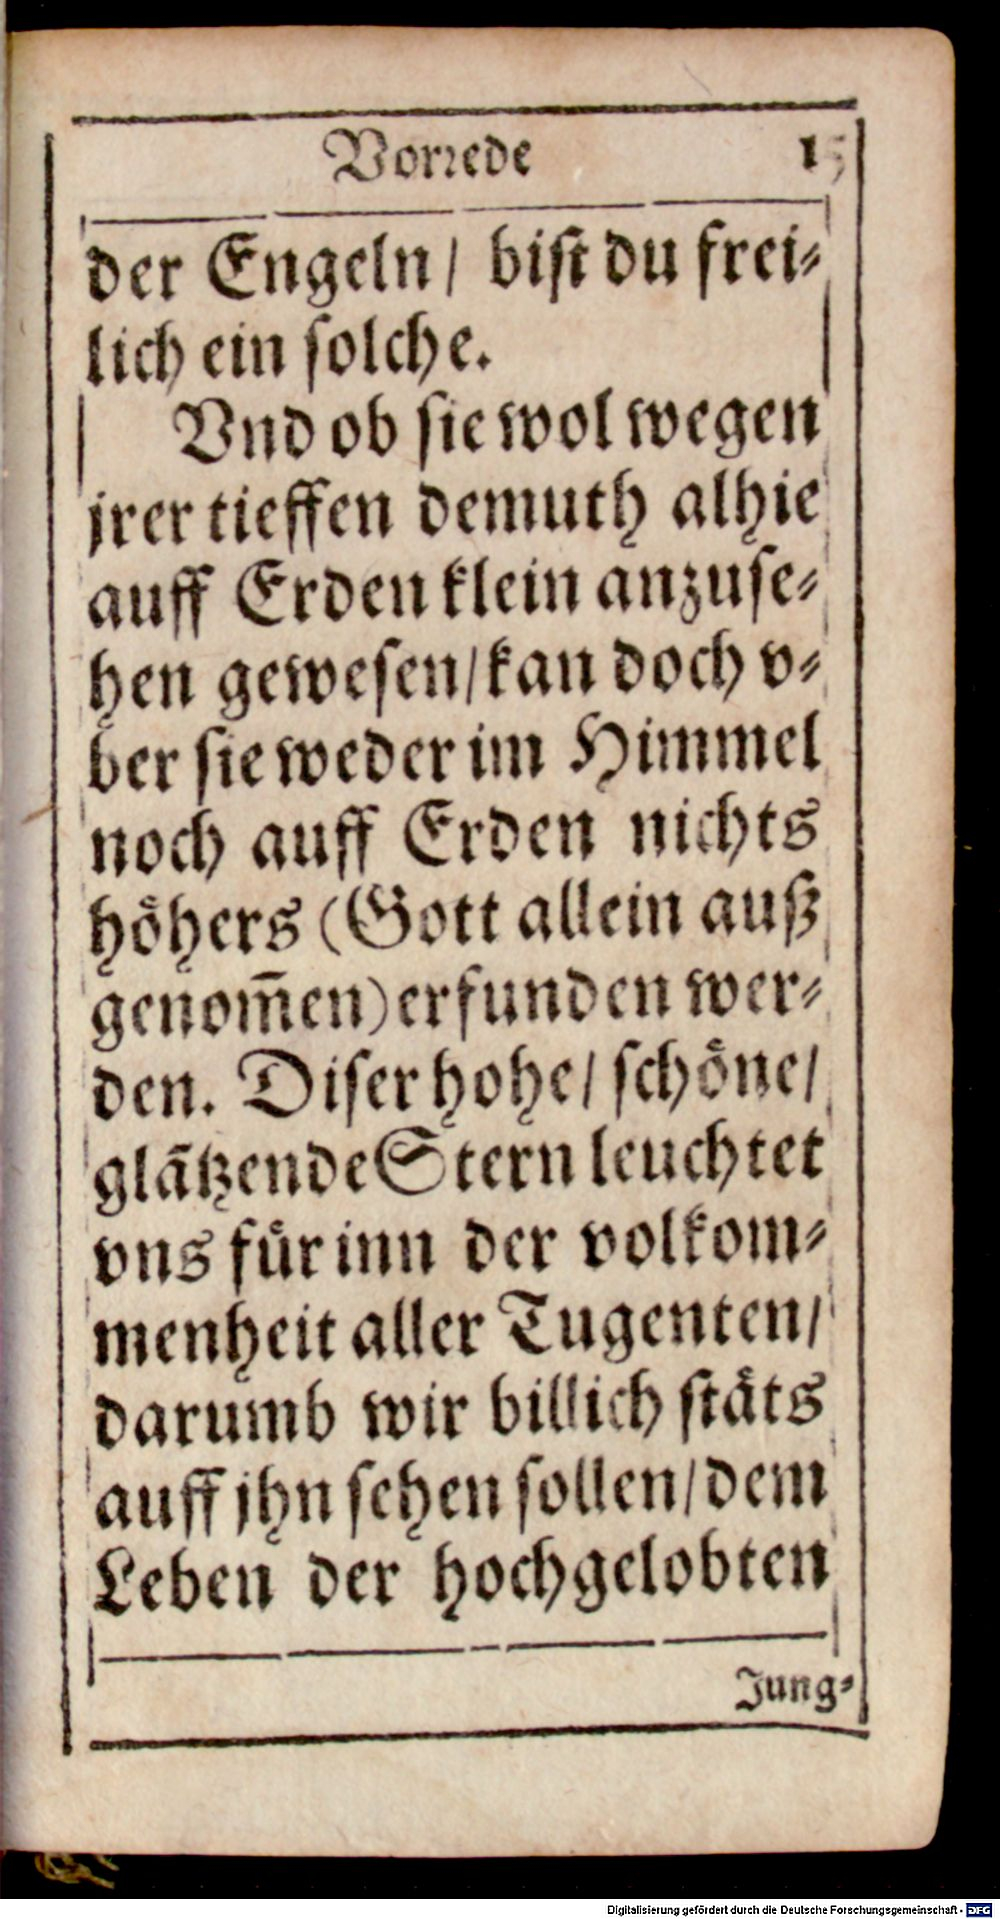 Vorꝛede 15
der Engeln/ biſt du frei⸗
lich ein ſolche.
Vnd ob ſie wol wegen
jrer tieffen demuth alhie
auff Erden klein anzuſe⸗
hen geweſen/ kan doch v⸗
ber ſie weder im Himmel
noch auff Erden nichts
hoͤhers (Gott allein auß
genom̃en) erfunden wer⸗
den. Diſer hohe/ ſchoͤne/
glãtzende Stern leuchtet
vns fuͤr inn der volkom⸗
menheit aller Tugenten/
darumb wir billich ſtaͤts
auff jhn ſehen ſollen/ dem
Leben der hochgelobten
Jung⸗
Digitalisierung gefördert durch die Deutsche Forschungsgemeinschaft - DFG